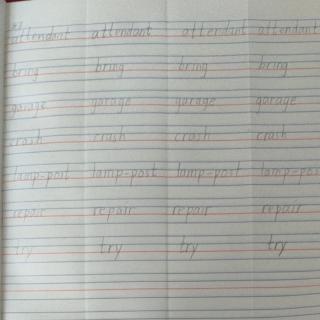 attendant attendant attendant attendant
bring bring bring bring
garage garage garage garage
crash crash crash crash
lamp-post lamp-post lamp-post lamp-post
repair repair repair repair
try try try try